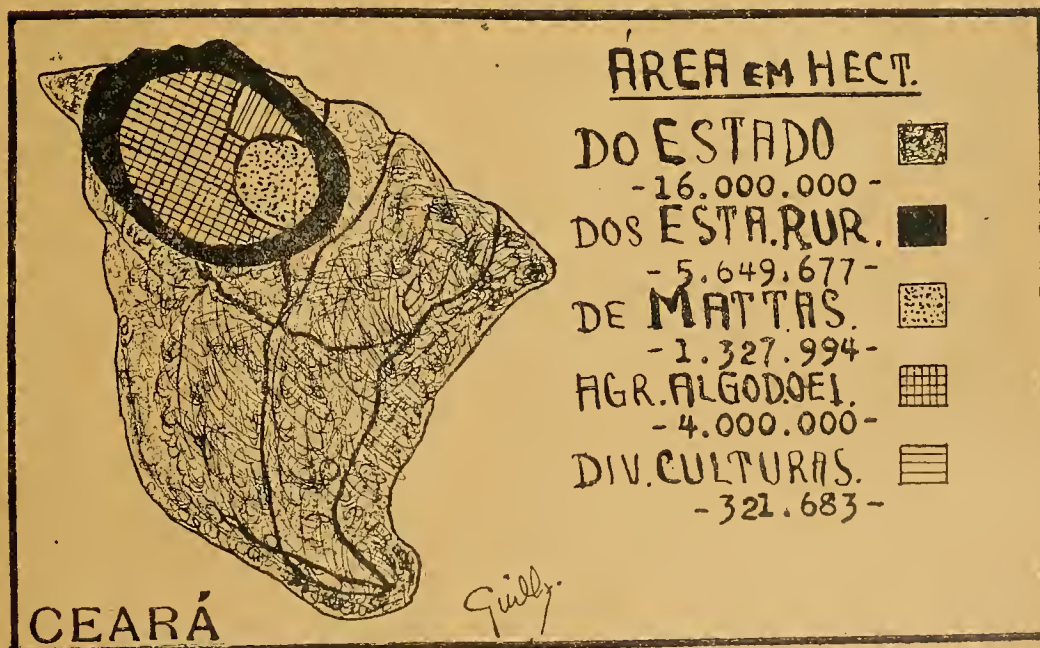 ÁREA EM HECT.
DO ESTADO
-16.000.000-
DOS ESTA.RUR.
-5.649.677-
DE MATTAS.
-1.327.994-
AGR.ALGODOEI.
-4.000.000-
DIV.CULTURAS.
-321.683-
CEARÁ